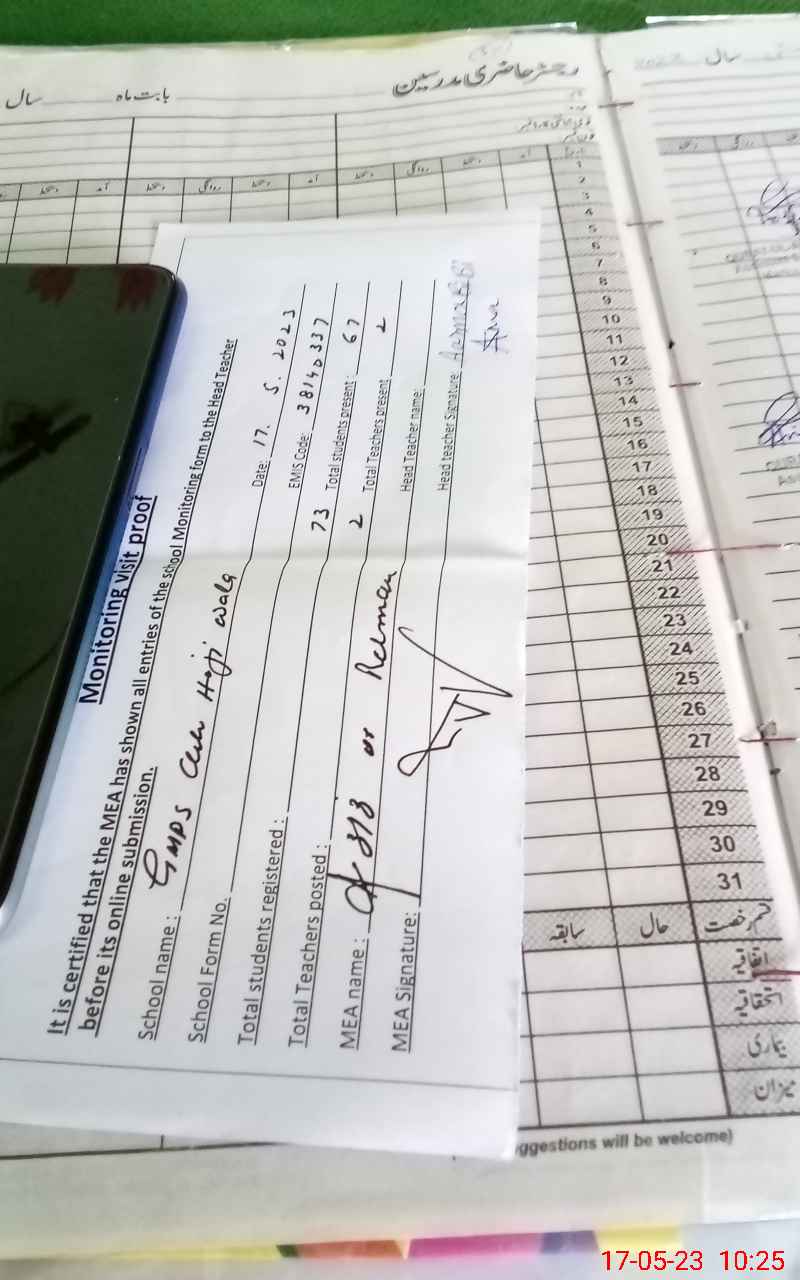 رجسٹر حاضری مدرسین
بابت ماہ
سال
سال
Monitoring visit proof
It is certified that the MEA has shown all entries of the school Monitoring form to the Head Teacher
before its online submission.
School name : GMPS Haji wala Date: 17. 5. 2023
School Form No. EMIS Code: 38140337
Total students registered : 73 Total students present : 67
Total Teachers posted : 2 Total Teachers present 2
MEA name : ur Rehman Head Teacher name:
MEA Signature: Head teacher Signature Aasma BiBi
1
2
3
4
5
6
7
8
9
10
11
12
13
14
15
16
17
18
19
20
21
22
23
24
25
26
27
28
29
30
31
قسم رخصت حال سابقہ
اتفاقیہ
استحقاقیہ
بیماری
میزان
ggestions will be welcome)
17-05-23 10:25